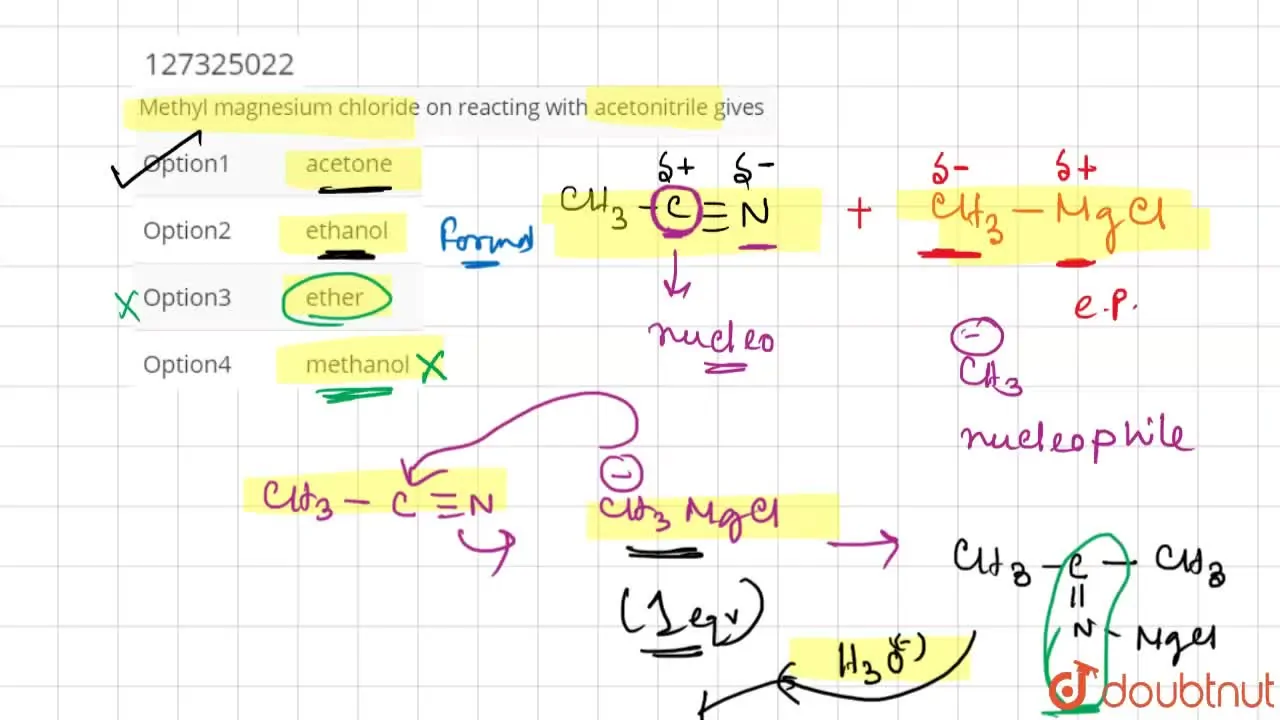 127325022
Methyl magnesium chloride on reacting with acetonitrile gives
Option1 acetone
Option2 ethanol
X Option3 ether
Option4 methanol X
formed
δ+ δ-
CH3 - C ≡ N
+
δ- δ+
CH3 - MgCl
e.p.
nucleo
-
CH3
nucleophile
CH3 - C ≡ N
-
CH3 MgCl
(1 eqv)
CH3 - C - CH3
||
N - MgCl
H3O(-)
doubtnut